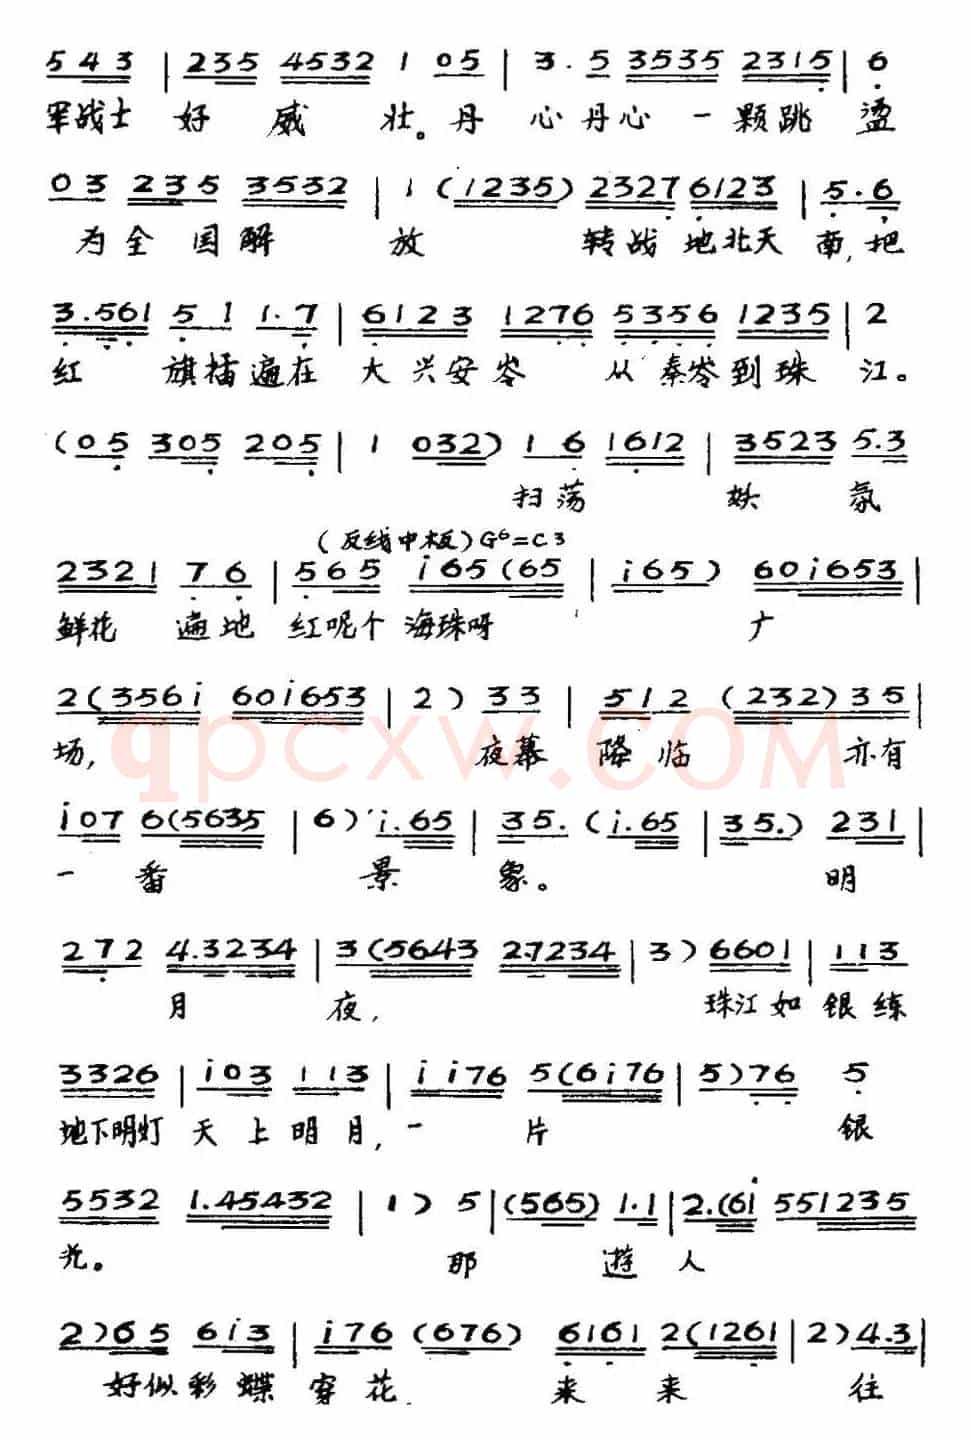 5 4 3 | 235 4532 1 05 | 3.5 3535 2315 | 6
军战士 好 威 壮。丹 心丹心 一颗跳 盪
03 235 3532 | 1 (1235) 2327 6123 | 5.6
为全 国解 放 转战 地北天 南,把
3.561 5 1 1.7 | 6123 1276 5356 1235 | 2
红 旗插遍在 大兴安岺 从秦岺到珠 江。
(05 305 205 | 1 032) 1 6 1612 | 3523 5.3
扫荡 妖 氛
(反线中板) G6=C3
2321 7 6 | 565 i65(65 | i65) 60i653 |
鲜花 遍地 红呢个 海珠呀 广
2(356i 60i653 | 2) 33 | 512 (232)35 |
场, 夜幕 降临 亦有
qpcxw.com
i07 6(5635 | 6) i.65 | 35. (i.65 | 35.) 231 |
一 番 景 象。 明
272 4.3234 | 3(5643 2.7234 | 3) 6601 | 113
月 夜, 珠江如 银练
3326 | i03 113 | i i76 5(6i76 | 5)76 5
地下明灯 天上明月,一 片 银
5532 1.45432 | 1) 5 | (565) 1.1 | 2.(6i 551235
光。 那 遊 人
2)65 6i3 | i76 (676) 6161 2(1261 | 2) 4.3 |
好似彩蝶 穿花 来 来 往